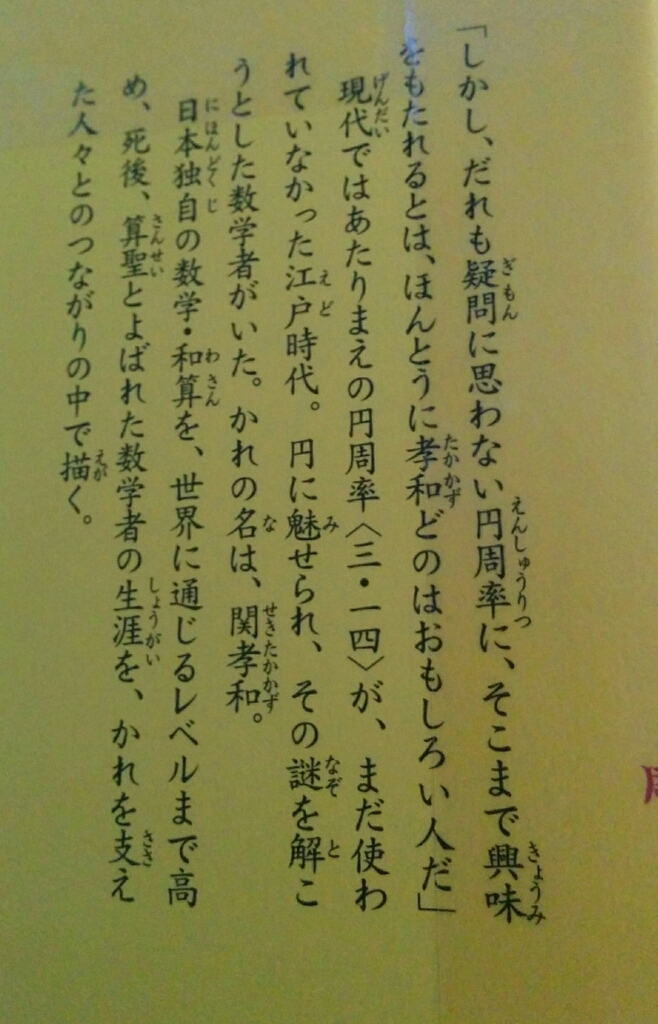 「しかし、だれも疑問に思わない円周率に、そこまで興味
をもたれるとは、ほんとうに孝和どのはおもしろい人だ」
現代ではあたりまえの円周率〈三・一四〉が、まだ使わ
れていなかった江戸時代。円に魅せられ、その謎を解こ
うとした数学者がいた。かれの名は、関孝和。
日本独自の数学・和算を、世界に通じるレベルまで高
め、死後、算聖とよばれた数学者の生涯を、かれを支え
た人々とのつながりの中で描く。